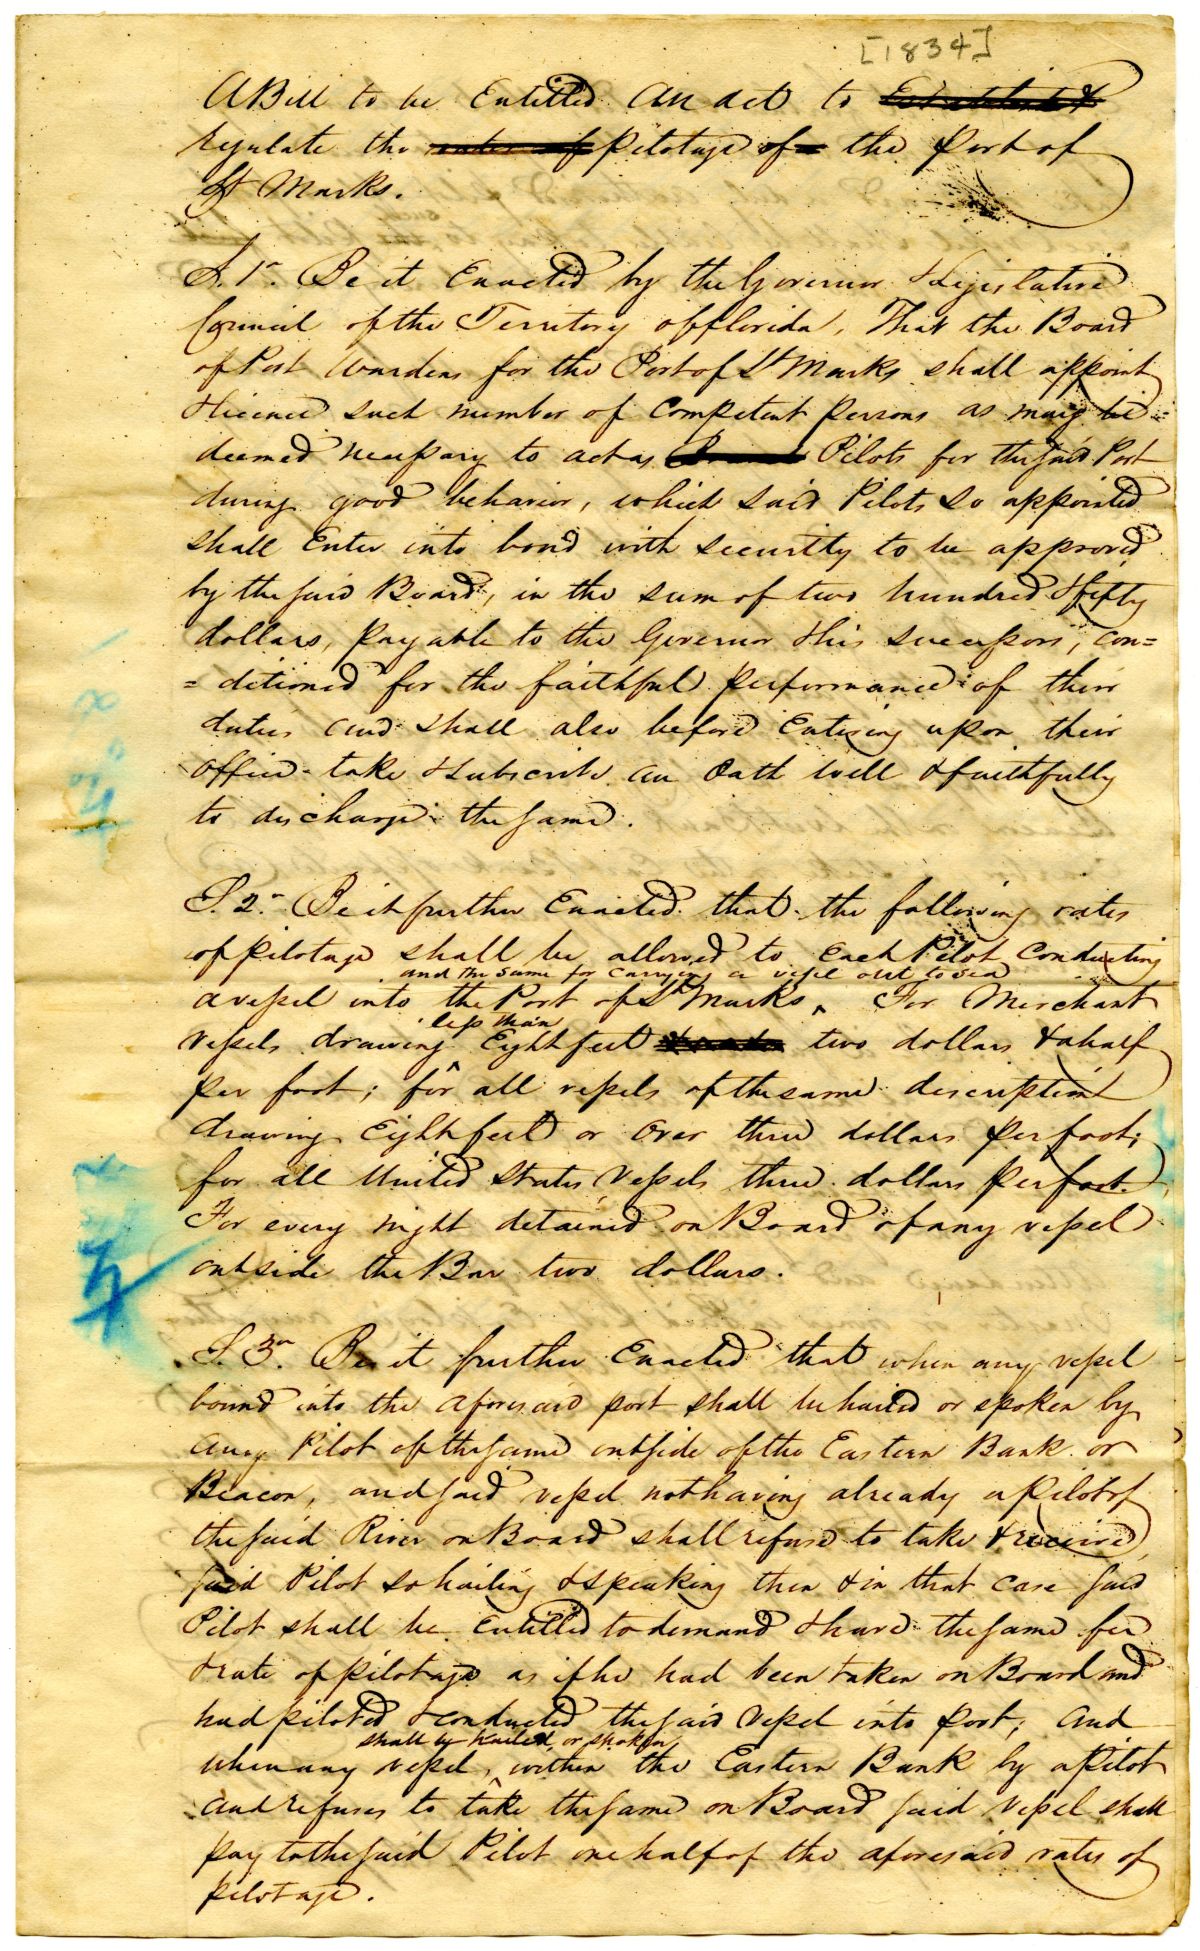 [1834]
A Bill to be Entitled An act to Establish &
regulate the rates of pilotage of the Port of
St Marks.
S. 1. Be it Enacted by the Governor & Legislative
Council of the Territory of florida, That the Board
of Port Wardens for the Port of St Marks shall appoint
& licence such number of Competent persons as may be
deemed necessary to act as Branch Pilots for the said Port
during good behavior, which said Pilots so appointed
shall Enter into bond with security to be approved
by the said Board, in the sum of two hundred & fifty
dollars, payable to the Governor & his successors, con=
=ditioned for the faithful performance of their
duties and shall also before Entering upon their
office take & subscribe an Oath well & faithfully
to discharge the same.
S. 2. Be it further Enacted that the following rates
of pilotage shall be allowed to Each Pilot Conducting
and the same for carrying a vessel out to sea
a vessel into the Port of St Marks, For Merchant
less than
vessels drawing Eight feet two dollars & a half
per foot; for all vessels of the same description
drawing Eight feet or over three dollars per foot;
for all United States Vessels three dollars per foot.
For every night detained on Board of any vessel
outside the Bar two dollars.
S. 3. Be it further Enacted that when any vessel
bound into the aforesaid port shall be hailed or spoken by
any Pilot of the same outside of the Eastern Bank or
Beacon, and said vessel not having already a pilot of
the said River on Board shall refuse to take & receive
said Pilot so hailing & speaking then & in that case said
Pilot shall be Entitled to demand & have the same fee
& rate of pilotage as if he had been taken on Board and
had piloted & conducted the said Vessel into port; And
shall by hailed, or spoken
when any vessel, within the Eastern Bank by a Pilot
and refuses to take the same on Board said vessel shall
pay to the said Pilot one half of the aforesaid rates of
pilotage.